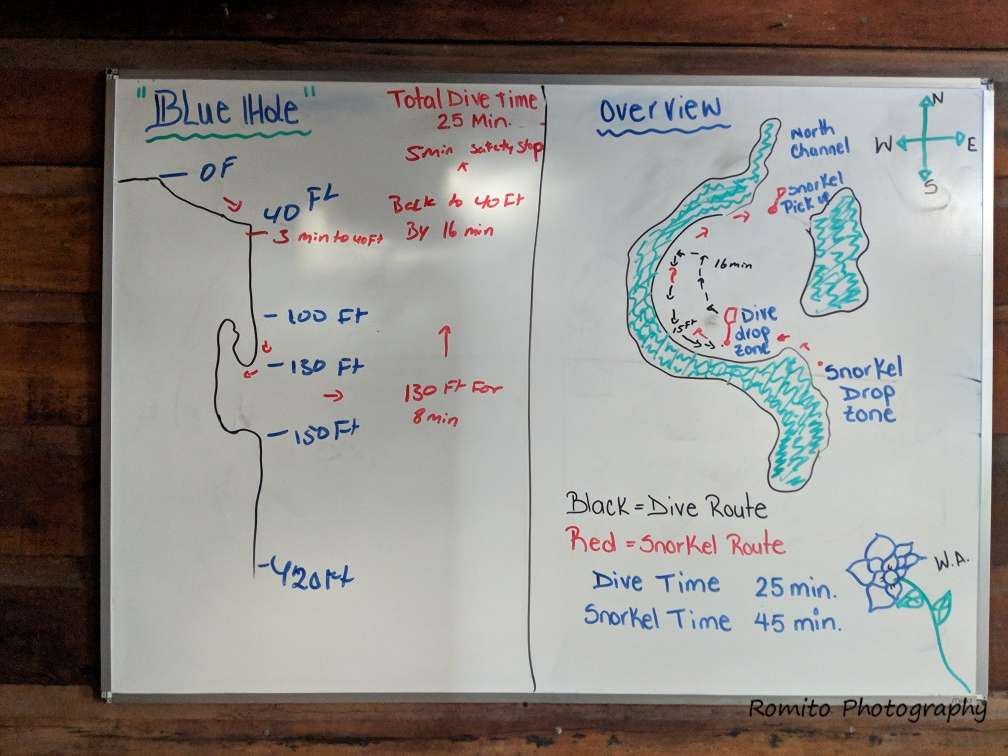 "Blue Hole"
Total Dive Time
25 Min.
5min safety stop
0F
40 Ft
3 min to 40Ft
Back to 40 Ft
By 16 min
100 Ft
130 Ft
130 Ft For
8 min
150 Ft
420Ft
Overview
North
Channel
N
W E
S
Snorkel
Pick up
16min
15Ft
Dive
drop
zone
Snorkel
Drop
zone
Black = Dive Route
Red = Snorkel Route
Dive Time 25 min.
Snorkel Time 45 min.
W.A.
Romito Photography